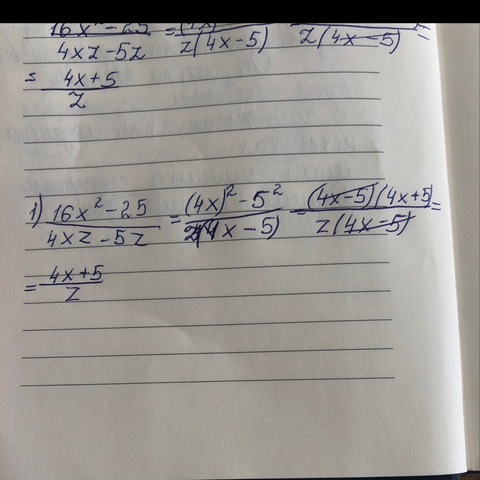 16x² - 25 / 4xz - 5z = (4x) / z(4x - 5) z(4x - 5) =
= 4x + 5 / z
1) 16x² - 25 / 4xz - 5z = (4x)² - 5² / z(4x - 5) = (4x - 5)(4x + 5) / z(4x - 5) =
= 4x + 5 / z